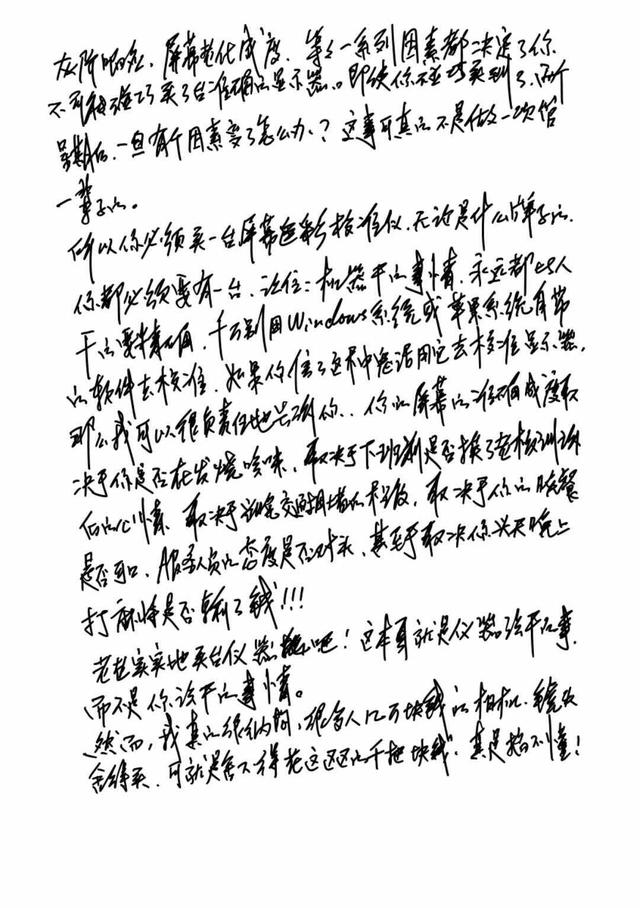 灰阶响应,屏幕老化成度,等等一系列因素都决定了你
不可能碰巧买了台准确的显示器。即使你
一旦有个因素变了怎么办?这事可真的不是做一次管
一辈子的。
所以你必须买一台屏幕色彩校准仪,无论是什么牌子的,
你都必须要有一台。记住:机器干的事情,永远都比人
干的要精确,千万别用Windows系统或苹果系统自带
的软件去校准,如果你信了这种鬼话用它去校准显示器,
那么我可以很负责任地告诉你,你的屏幕的准确成度取
决于你是否在发烧咳嗽,取决于下班前是否挨了老板训斥
后的心情,取决于交通拥堵的程度,取决于你的晚餐
是否可口,服务人员的态度是否对头,甚至于取决你头天晚上
打麻将是否输了钱!!!
老老实实地买台仪器吧!这本身就是仪器该干的事,
而不是你该干的事情。
然而,我真的很纳闷,很多人几万块钱的相机、镜头
舍得买,可就是舍不得花这区区的千把块钱,真是搞不懂!